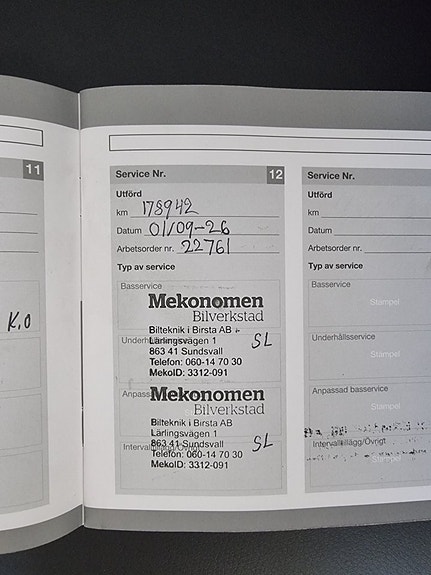 11
K.O
Service Nr. 12
Utförd
km 178942
Datum 01/09-26
Arbetsorder nr. 22761
Typ av service
Basservice
Mekonomen
Bilverkstad
Bilteknik i Birsta AB
Lärlingsvägen 1
863 41 Sundsvall SL
Telefon: 060-14 70 30
MekoID: 3312-091
Mekonomen
Bilverkstad
Bilteknik i Birsta AB
Lärlingsvägen 1
863 41 Sundsvall SL
Telefon: 060-14 70 30
MekoID: 3312-091
Service Nr.
Utförd
km
Datum
Arbetsorder nr.
Typ av service
Basservice
Stämpel
Underhållsservice
Stämpel
Anpassad basservice
Stämpel
Intervalltillägg/Övrigt
Stämpel